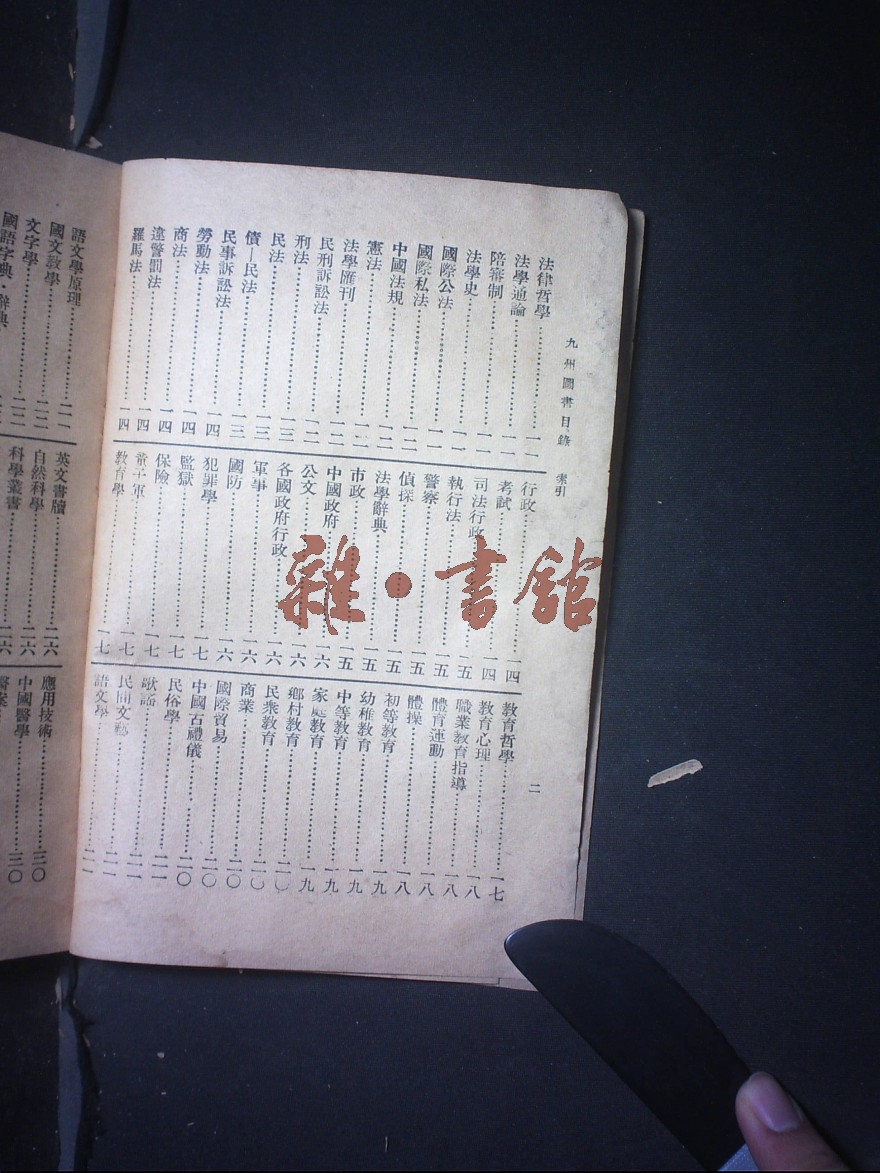 九州圖書目錄 索引 二
法律哲學…………一一
法學通論…………一一
陪審制…………一一
法學史…………一一
國際公法…………一一
國際私法…………一二
中國法規…………一二
憲法…………一二
法學匯刊…………一二
民刑訴訟法…………一二
刑法…………一三
民法…………一三
債—民法…………一三
民事訴訟法…………一四
勞動法…………一四
商法…………一四
違警罰法…………一四
羅馬法…………一四
行政…………一四
考試…………一四
司法行政…………一五
執行法…………一五
警察…………一五
偵探…………一五
法學辭典…………一五
市政…………一五
中國政府…………一六
公文…………一六
各國政府行政…………一六
軍事…………一六
國防…………一六
犯罪學…………一七
監獄…………一七
保險…………一七
童子軍…………一七
教育學…………一七
教育哲學…………一七
教育心理…………一八
職業教育指導…………一八
體育運動…………一八
體操…………一八
初等教育…………一九
幼稚教育…………一九
中等教育…………一九
家庭教育…………一九
鄉村教育…………二〇
民衆教育…………二〇
商業…………二〇
國際貿易…………二〇
中國古禮儀…………二〇
民俗學…………二一
歌謠…………二一
民間文藝…………二一
語文學…………二一
語文學原理…………二一
國文教學…………二二
文字學…………二二
國語字典·辭典
英文書牘…………二六
自然科學…………二六
科學叢書…………二六
應用技術…………三〇
中國醫學…………三〇
醫案
雜·書館